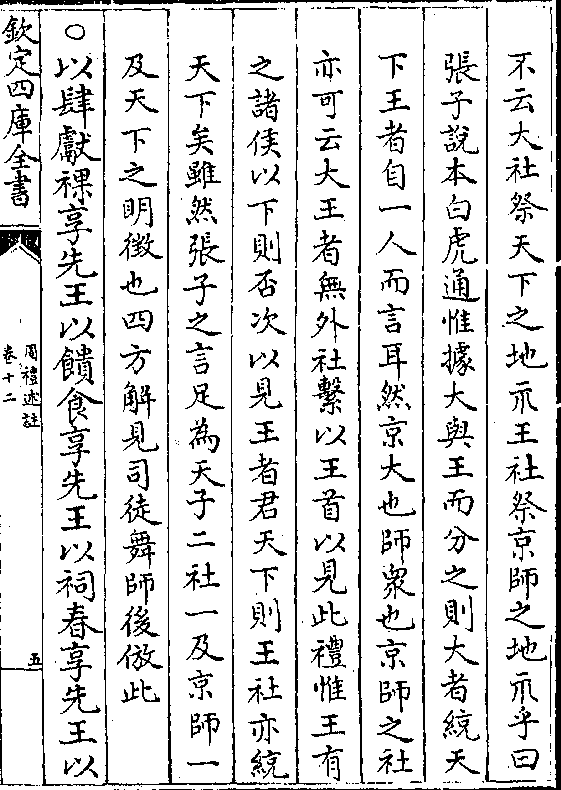 不云大社祭天下之地示王社祭京師之地示乎曰
張子說本白虎通惟據大與王而分之則大者統天
下王者自一人而言耳然京大也師衆也京師之社
亦可云大王者無外社繫以王首以見此禮惟王有
之諸侯以下則否次以見王者君天下則王社亦統
天下矣雖然張子之言足為天子二社一及京師一
及天下之明徴也四方解見司徒舞師後倣此
○以肆獻祼享先王以饋食享先王以祠春享先王以
欽定四庫全書
周禮述註
卷十二
五